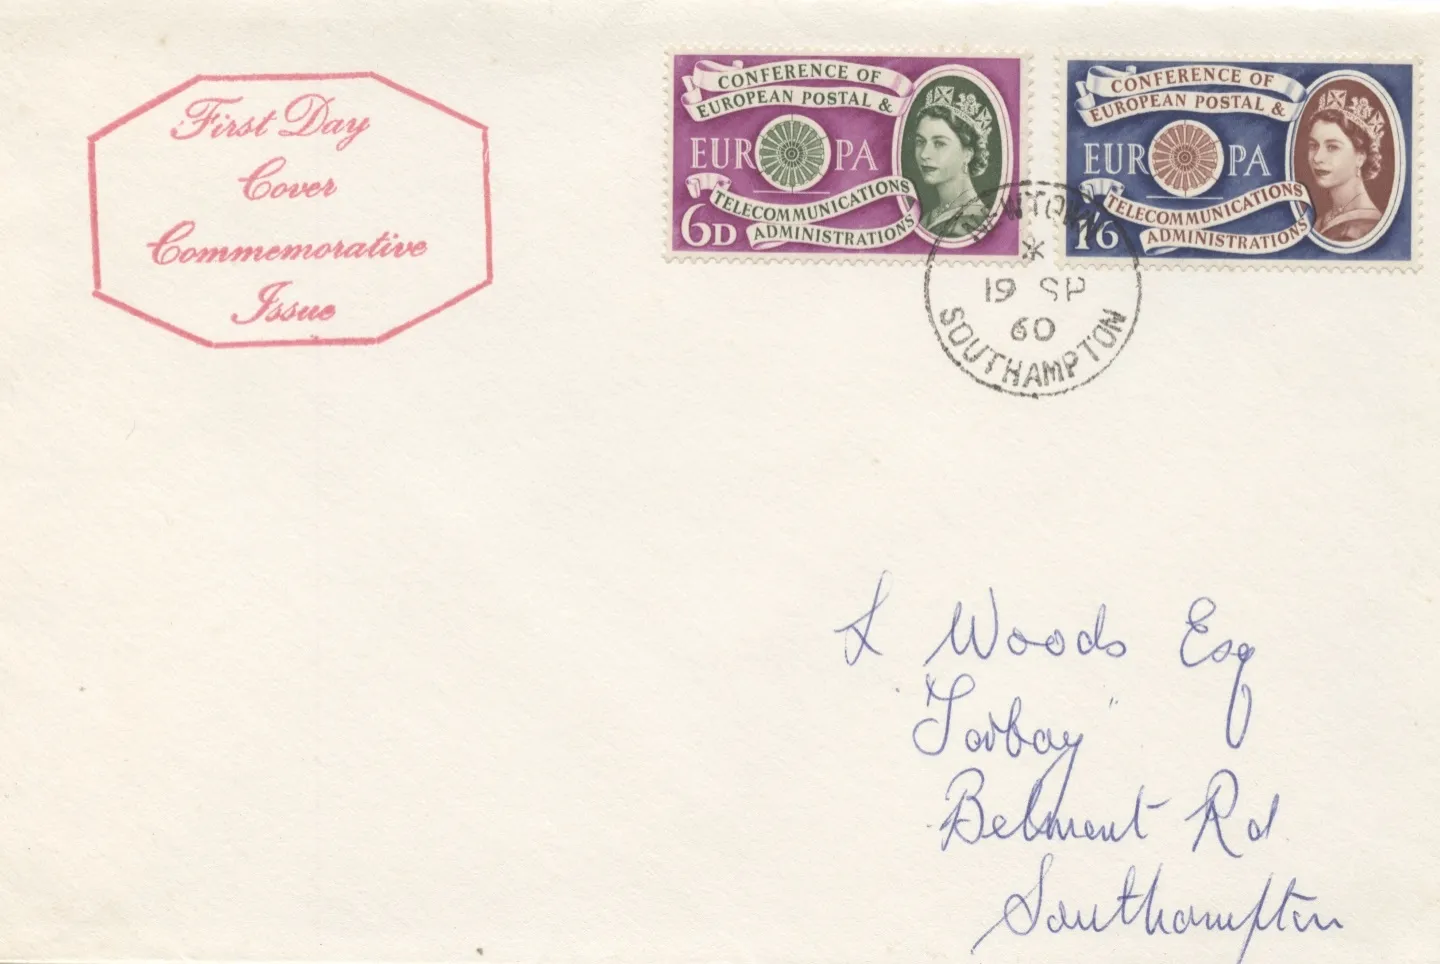 First Day
Cover
Commemorative
Issue
CONFERENCE OF
EUROPEAN POSTAL &
EUROPA
TELECOMMUNICATIONS
ADMINISTRATIONS
6D
CONFERENCE OF
EUROPEAN POSTAL &
EUROPA
TELECOMMUNICATIONS
ADMINISTRATIONS
1'6
NEWTOWN
*
19 SP
60
SOUTHAMPTON
L Woods Esq
"Torbay"
Belmont Rd
Southampton